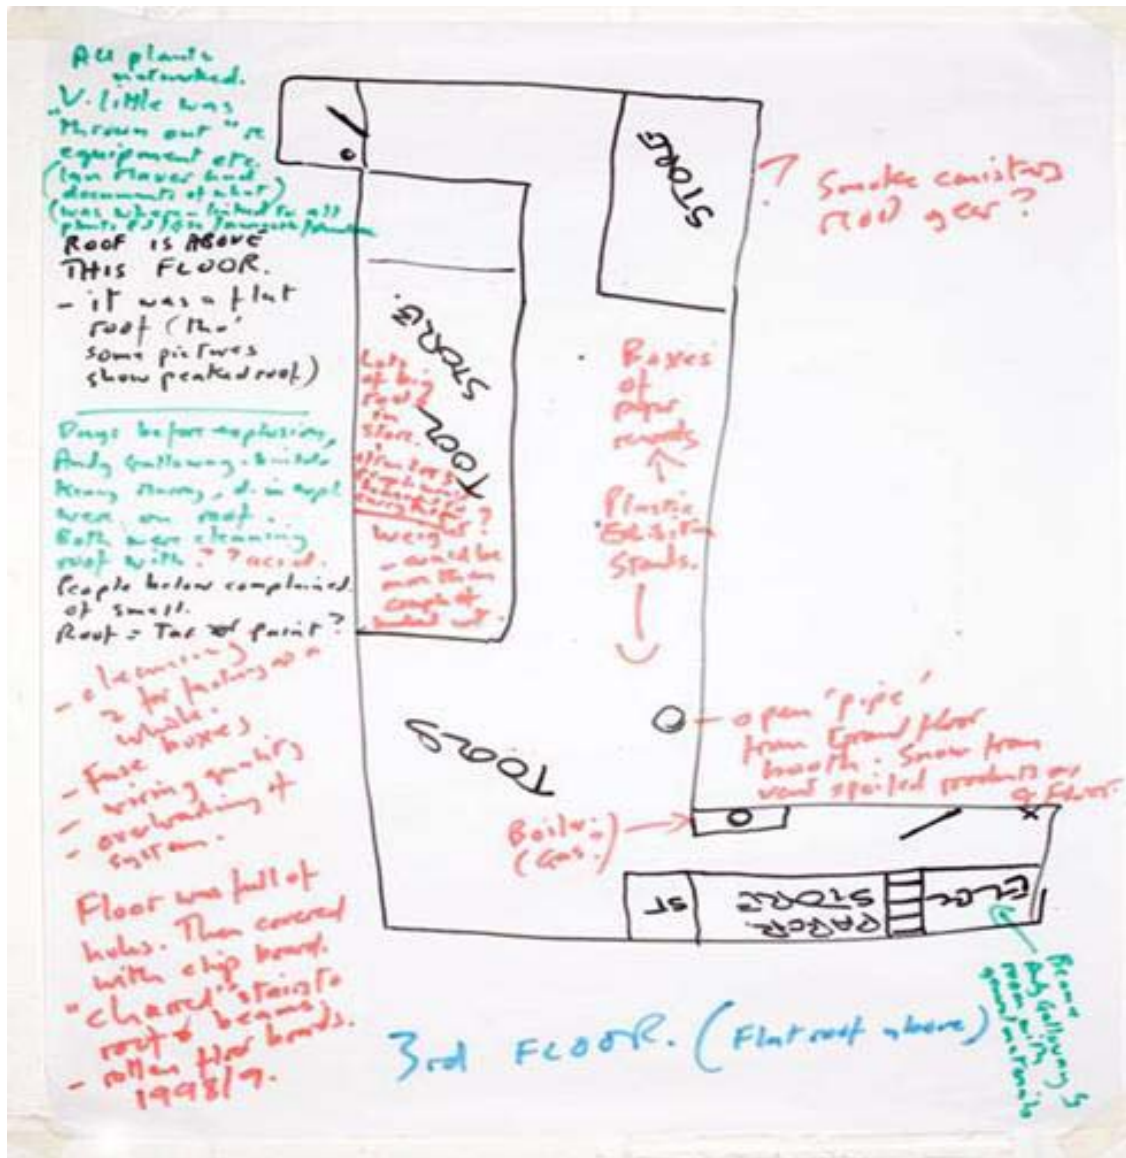 All plants
networked.
"V. little was
thrown out" re
equipment etc.
documents of what)
ROOF IS ABOVE
THIS FLOOR.
- it was a flat
roof (tho'
some pictures
show peaked roof)
Days before explosion,
Andy Galloway -
Kenny Murray,
were on roof.
Both were cleaning
roof with ? ? acid.
People below complained
of smell.
Roof = Tar or paint?
- cleansing
? for factory as a
whole.
- Fuse boxes
- wiring quality
- overloading of
system.
Floor was full of
holes. Then covered
with chip board.
"charred" stain to
roof & beams
- rotten floor boards.
1998/9.
STORE
? Smoke canisters
gear?
TOOL STORE.
Lots
of big
tools
in
store.
weight?
- would be
more than
couple of
Boxes
of
paper
records
Plastic
Exhibition
Stands.
TOOLS
- open 'pipe'
from Ground floor
booth. Snow from
vent spoiled products on
Boiler.
(Gas.)
ST
PAPER
STORE
ELEC
Andy Galloway's
3rd FLOOR. (Flat roof above)